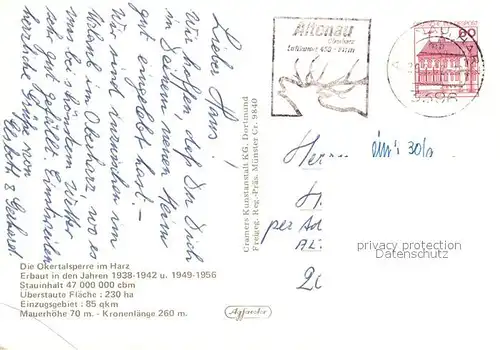 Lieber Hans!
Wir hoffen, daß Du Dich
in Deinem neuen Heim
gut eingelebt hast. –
Wir sind inzwischen im
Urlaub im Oberharz, wo es
uns bei schönem Wetter
sehr gut gefällt. Einstweilen
herzliche Grüße von
Elsbeth & Gerhard.
Die Okertalsperre im Harz
Erbaut in den Jahren 1938-1942 u. 1949-1956
Stauinhalt 47 000 000 cbm
Überstaute Fläche : 230 ha
Einzugsgebiet : 85 qkm
Mauerhöhe 70 m. - Kronenlänge 260 m.
Cramers Kunstanstalt KG. Dortmund
Freigeg. Reg.-Präs. Münster Cr. 9840
Altenau
Oberharz
Luftkurort 450 -
60
3396
30/6
Herrn
H.
per Ad
AL
privacy protection
watermark